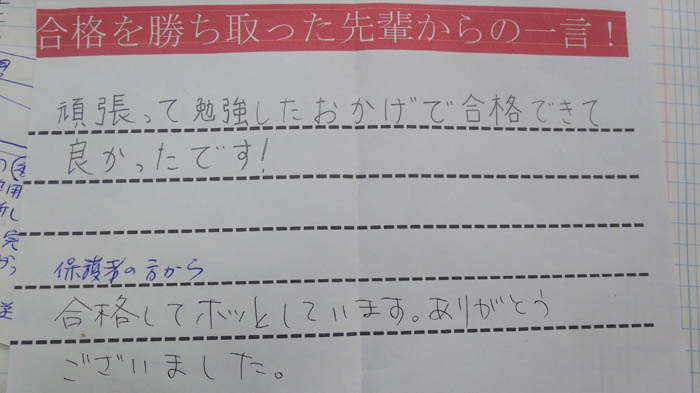 合格を勝ち取った先輩からの一言!
頑張って勉強したおかげで合格できて
良かったです!
保護者の方から
合格してホッとしています。ありがとう
ございました。